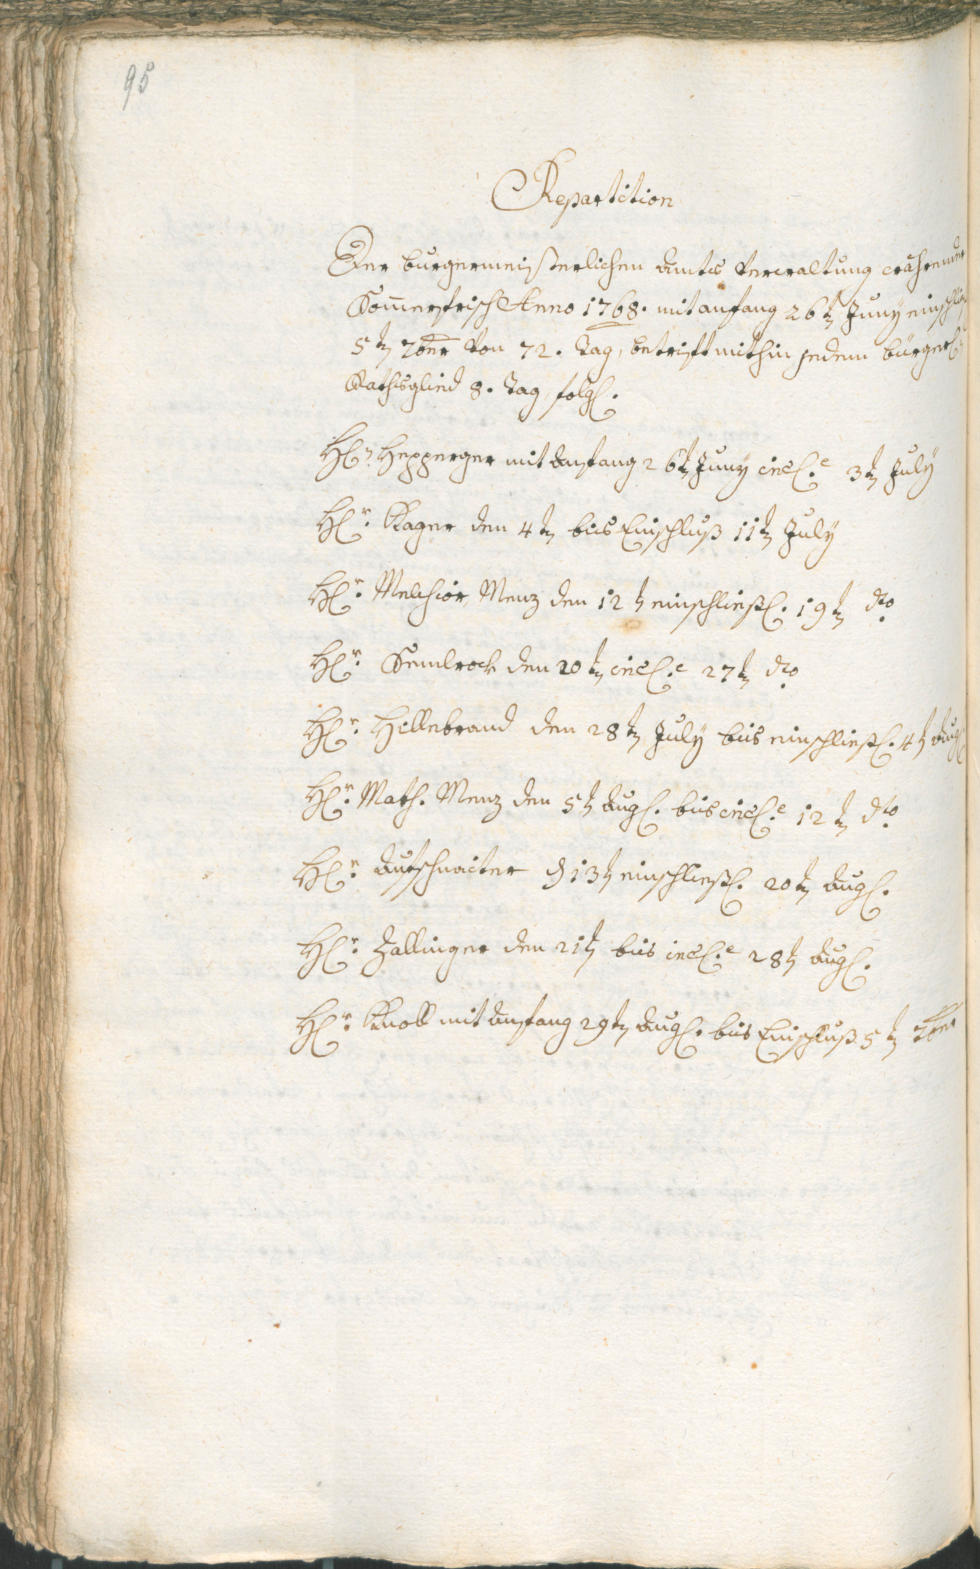 95
Repartition
Der burgermeisterlichen Amts Verwaltung während
Som̄erfrisch Anno 1768. mit anfang 26tn Juny einschlüß
5tn 7ber von 72. Tag, betrifft mithin jedem bürgerl.
Rathsglied 8. Tag folgl.
Hl. Hepperger mit Anfang 26tn Juny incl.e 3tn July
Hl.r Kager den 4tn bis Einschluß 11tn July
Hl.r Melchior Menz den 12t einschließl. 19tn dto
Hl.r Semlrock den 20tn incl.e 27tn dto
Hl.r Hillebrand den 28tn July bis einschließl. 4t Aug
Hl.r Math. Menz den 5t Augl. bis incl.e 12tn dto
Hl.r Autschnaiter d 13t einschließl. 20tn Augl.
Hl.r Zallinger den 21t bis incl.e 28t Augl.
Hl.r Knoll mit Anfang 29tn Augl. bis Einschluß 5tn 7ber